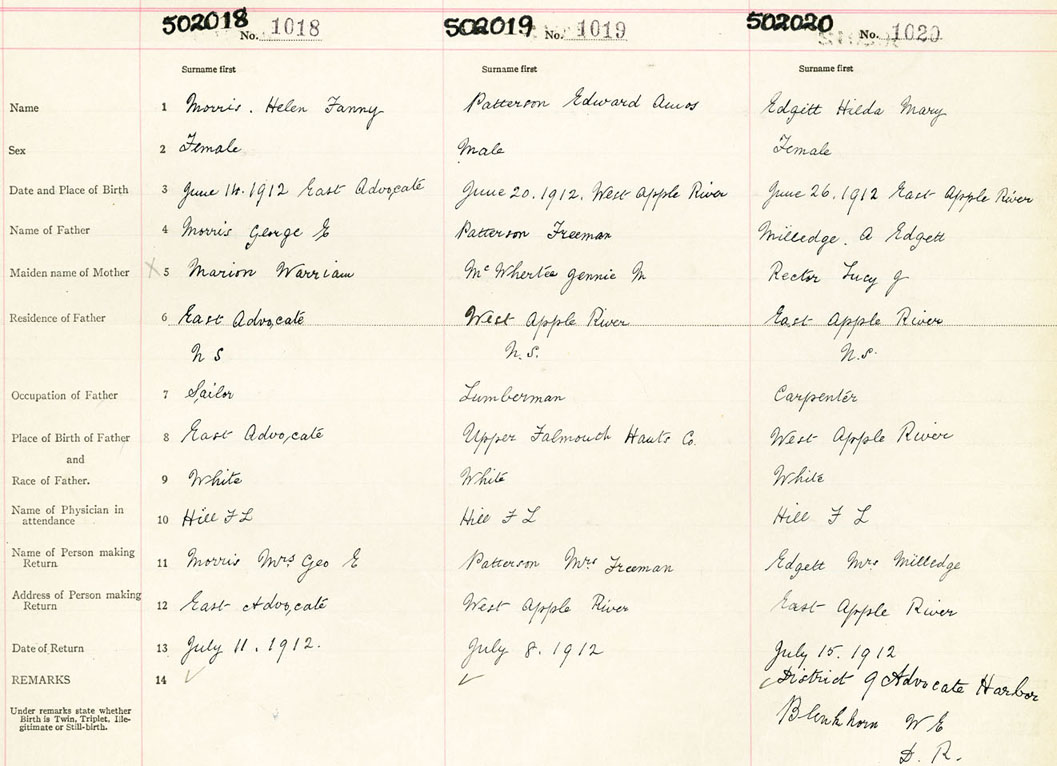 502018 No. 1018 502019 No. 1019 502020 No. 1020
Surname first Surname first Surname first
Name 1 Morris. Helen Fanny Patterson Edward Amos Edgitt Hilda Mary
Sex 2 Female Male Female
Date and Place of Birth 3 June 14. 1912 East Advocate June 20. 1912. West Apple River June 26. 1912 East Apple River
Name of Father 4 Morris George E Patterson Freeman Milledge. A Edgett
Maiden name of Mother X 5 Marion Warriam McWhertee Jennie M Rector Lucy J
Residence of Father 6 East Advocate West Apple River East Apple River
N S N.S. N.S.
Occupation of Father 7 Sailor Lumberman Carpenter
Place of Birth of Father 8 East Advocate Upper Falmouth Hants Co. West Apple River
and
Race of Father. 9 White White White
Name of Physician in
attendance 10 Hill F L Hill F L Hill F L
Name of Person making
Return 11 Morris Mrs Geo E Patterson Mrs Freeman Edgett Mrs Milledge
Address of Person making
Return 12 East Advocate West Apple River East Apple River
Date of Return 13 July 11. 1912. July 8. 1912 July 15. 1912
REMARKS 14 ✓ ✓ ✓ District 9 Advocate Harbor
Under remarks state whether
Birth is Twin, Triplet, Ille-
gitimate or Still-birth.
Blenkhorn W E
D. R.